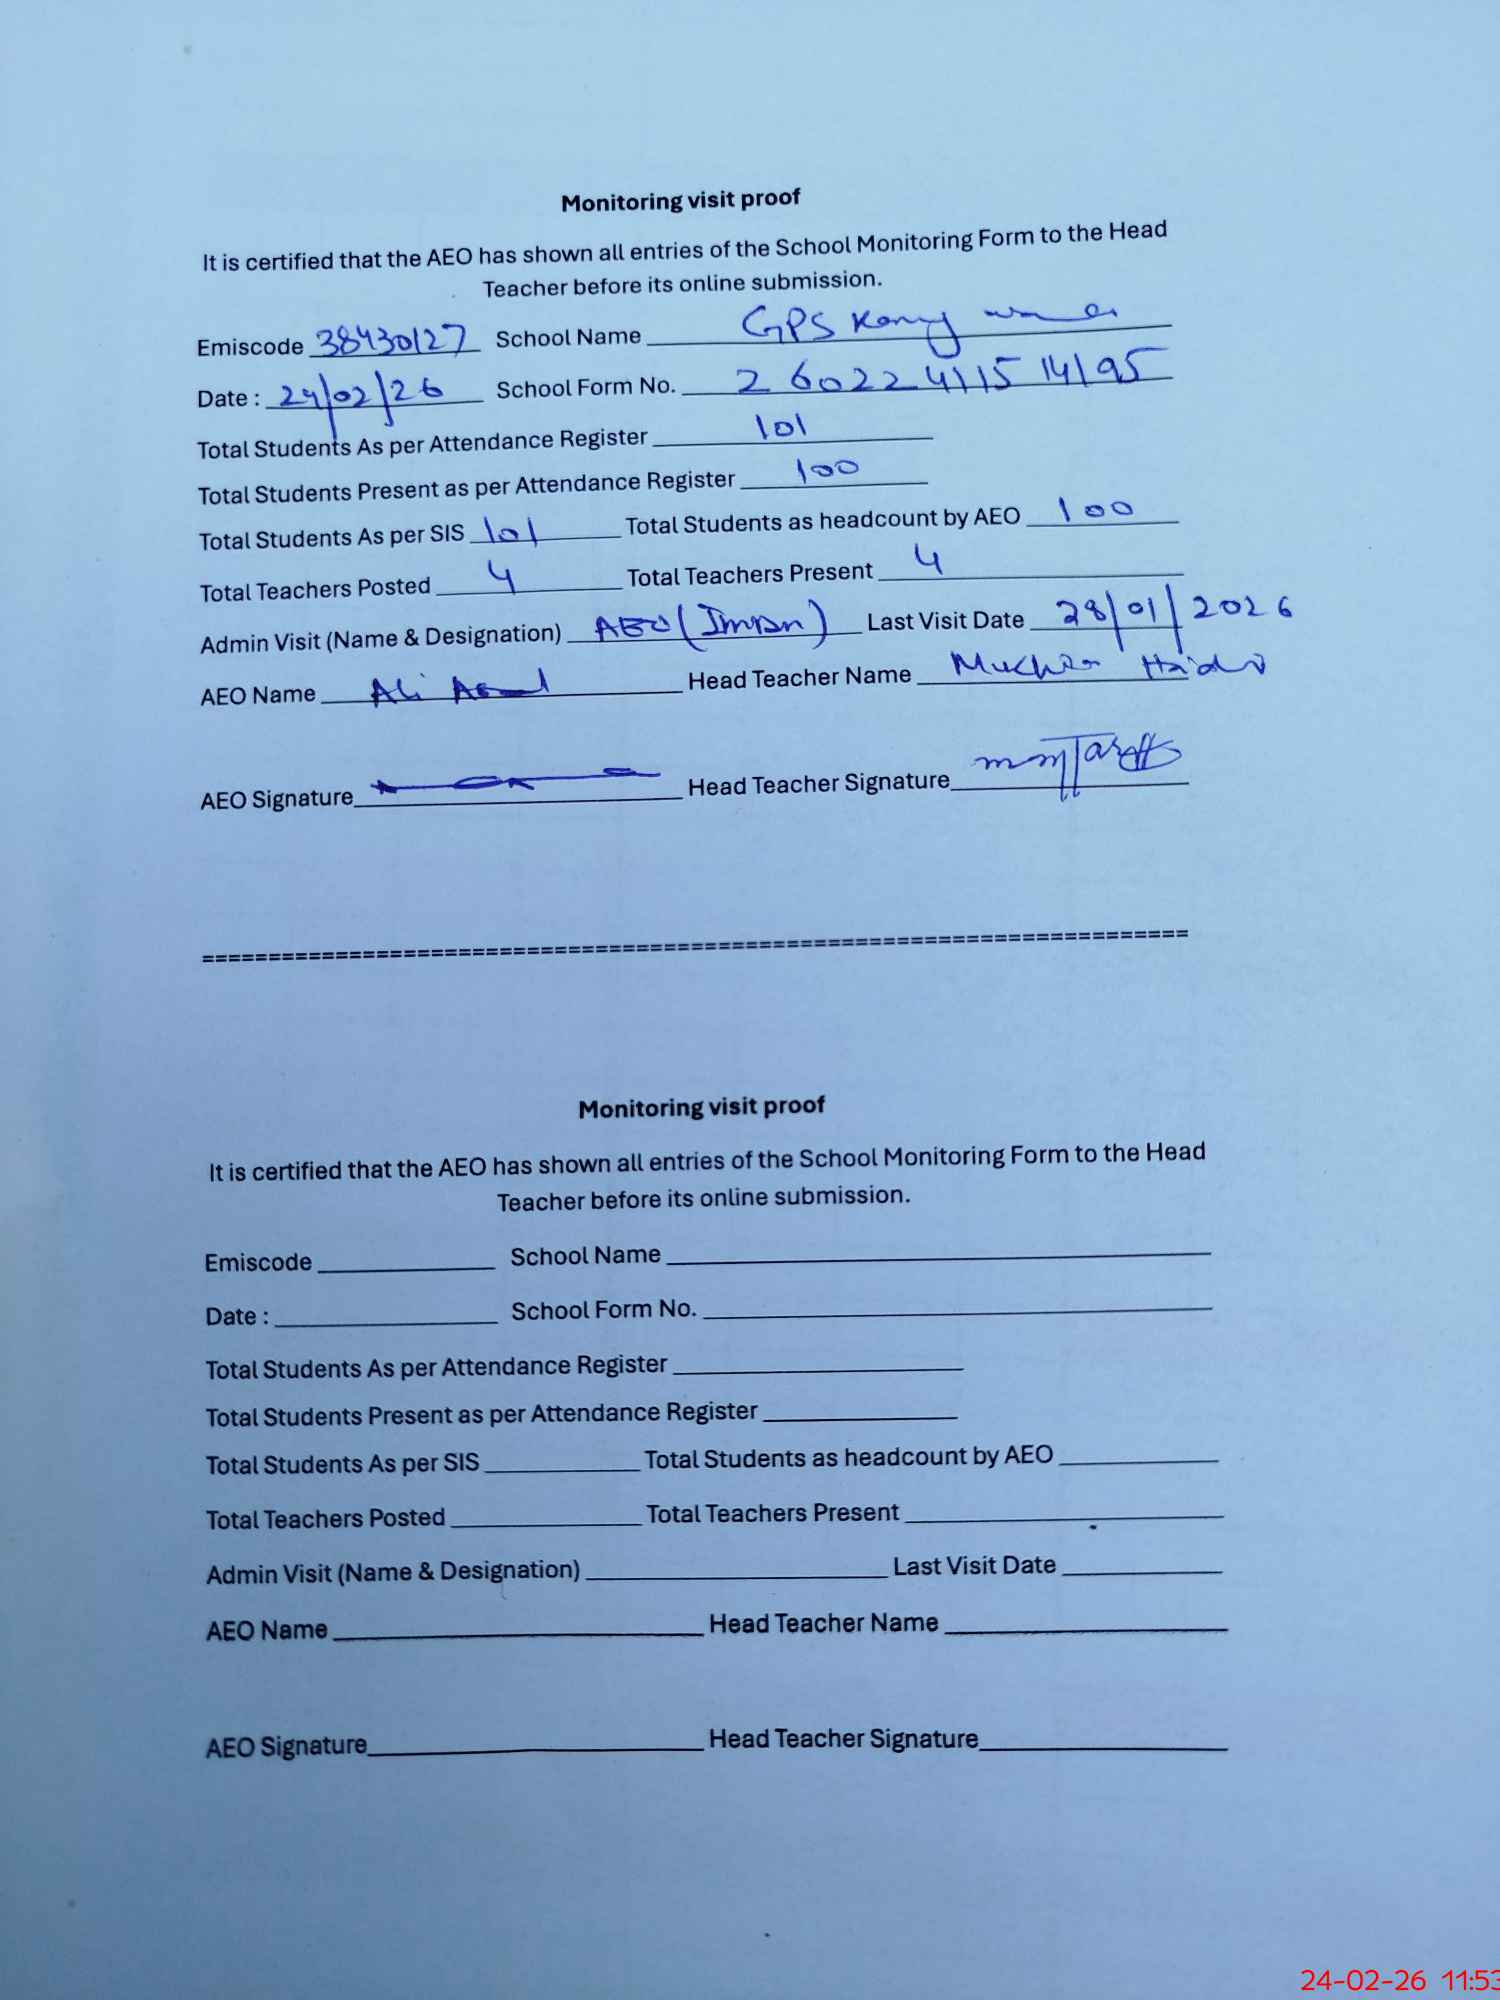 Monitoring visit proof
It is certified that the AEO has shown all entries of the School Monitoring Form to the Head
Teacher before its online submission.
Emiscode 38430127 School Name GPS
Date : 24/02/26 School Form No. 260224115 14195
Total Students As per Attendance Register 101
Total Students Present as per Attendance Register 100
Total Students As per SIS 101 Total Students as headcount by AEO 100
Total Teachers Posted 4 Total Teachers Present 4
Admin Visit (Name & Designation) AEO (Imran) Last Visit Date 28/01/2026
AEO Name Ali Head Teacher Name
AEO Signature Head Teacher Signature
==========================================================================
Monitoring visit proof
It is certified that the AEO has shown all entries of the School Monitoring Form to the Head
Teacher before its online submission.
Emiscode School Name
Date : School Form No.
Total Students As per Attendance Register
Total Students Present as per Attendance Register
Total Students As per SIS Total Students as headcount by AEO
Total Teachers Posted Total Teachers Present
Admin Visit (Name & Designation) Last Visit Date
AEO Name Head Teacher Name
AEO Signature Head Teacher Signature
24-02-26 11:53